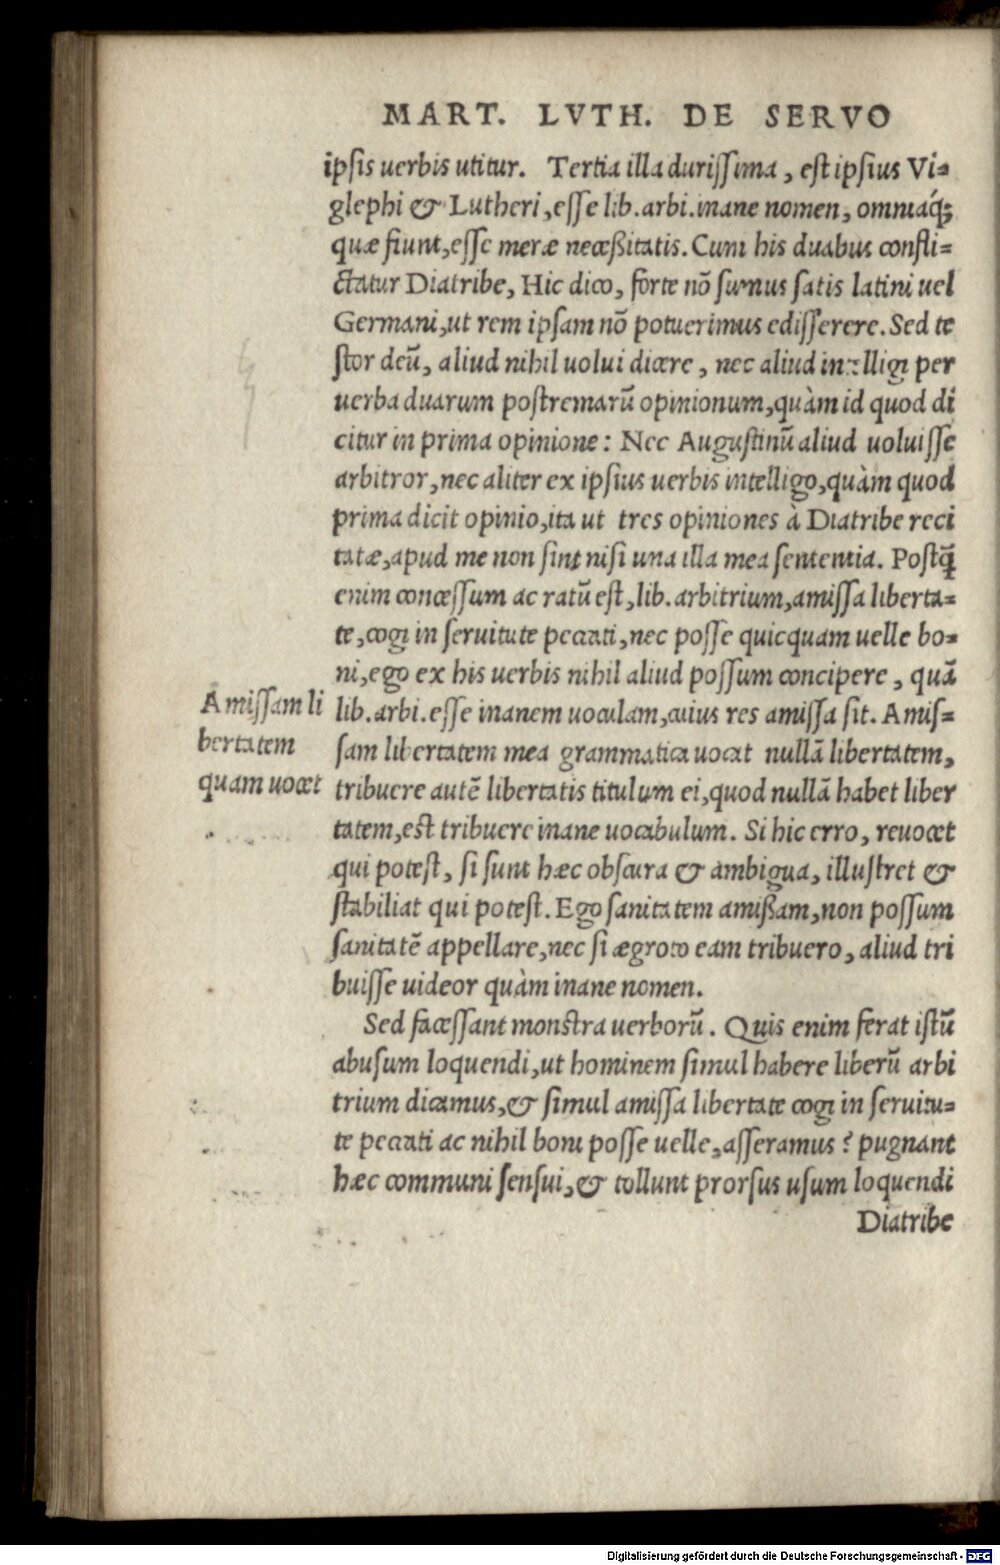 MART. LVTH. DE SERVO
ipsis uerbis utitur. Tertia illa durissima, est ipsius Vi=
glephi & Lutheri, esse lib. arbi. inane nomen, omniaq́;
quæ fiunt, esse meræ neceßitatis. Cum his duabus confli=
ctatur Diatribe, Hic dico, forte nō sumus satis latini uel
Germani, ut rem ipsam nō potuerimus edisserere. Sed te
stor deū, aliud nihil uolui dicere, nec aliud intelligi per
uerba duarum postremarū opinionum, quàm id quod di
citur in prima opinione: Nec Augustinū aliud uoluisse
arbitror, nec aliter ex ipsius uerbis intelligo, quàm quod
prima dicit opinio, ita ut tres opiniones à Diatribe reci
tatæ, apud me non sint nisi una illa mea sententia. Postq̄
enim concessum ac ratū est, lib. arbitrium, amissa liberta=
te, cogi in seruitute peccati, nec posse quicquam uelle bo=
ni, ego ex his uerbis nihil aliud possum concipere, quā
lib. arbi. esse inanem uoculam, cuius res amissa sit. Amis=
sam libertatem mea grammatica uocat nullā libertatem,
tribuere autē libertatis titulum ei, quod nullā habet liber
tatem, est tribuere inane uocabulum. Si hic erro, reuocet
qui potest, si sunt hæc obscura & ambigua, illustret &
stabiliat qui potest. Ego sanitatem amißam, non possum
sanitatē appellare, nec si ægroto eam tribuero, aliud tri
buisse uideor quàm inane nomen.
Sed facessant monstra uerborū. Quis enim ferat istū
abusum loquendi, ut hominem simul habere liberū arbi
trium dicamus, & simul amissa libertate cogi in seruitu=
te peccati ac nihil boni posse uelle, asseramus? pugnant
hæc communi sensui, & tollunt prorsus usum loquendi
Diatribe
Amissam li
bertatem
quam uocet
Digitalisierung gefördert durch die Deutsche Forschungsgemeinschaft - DFG